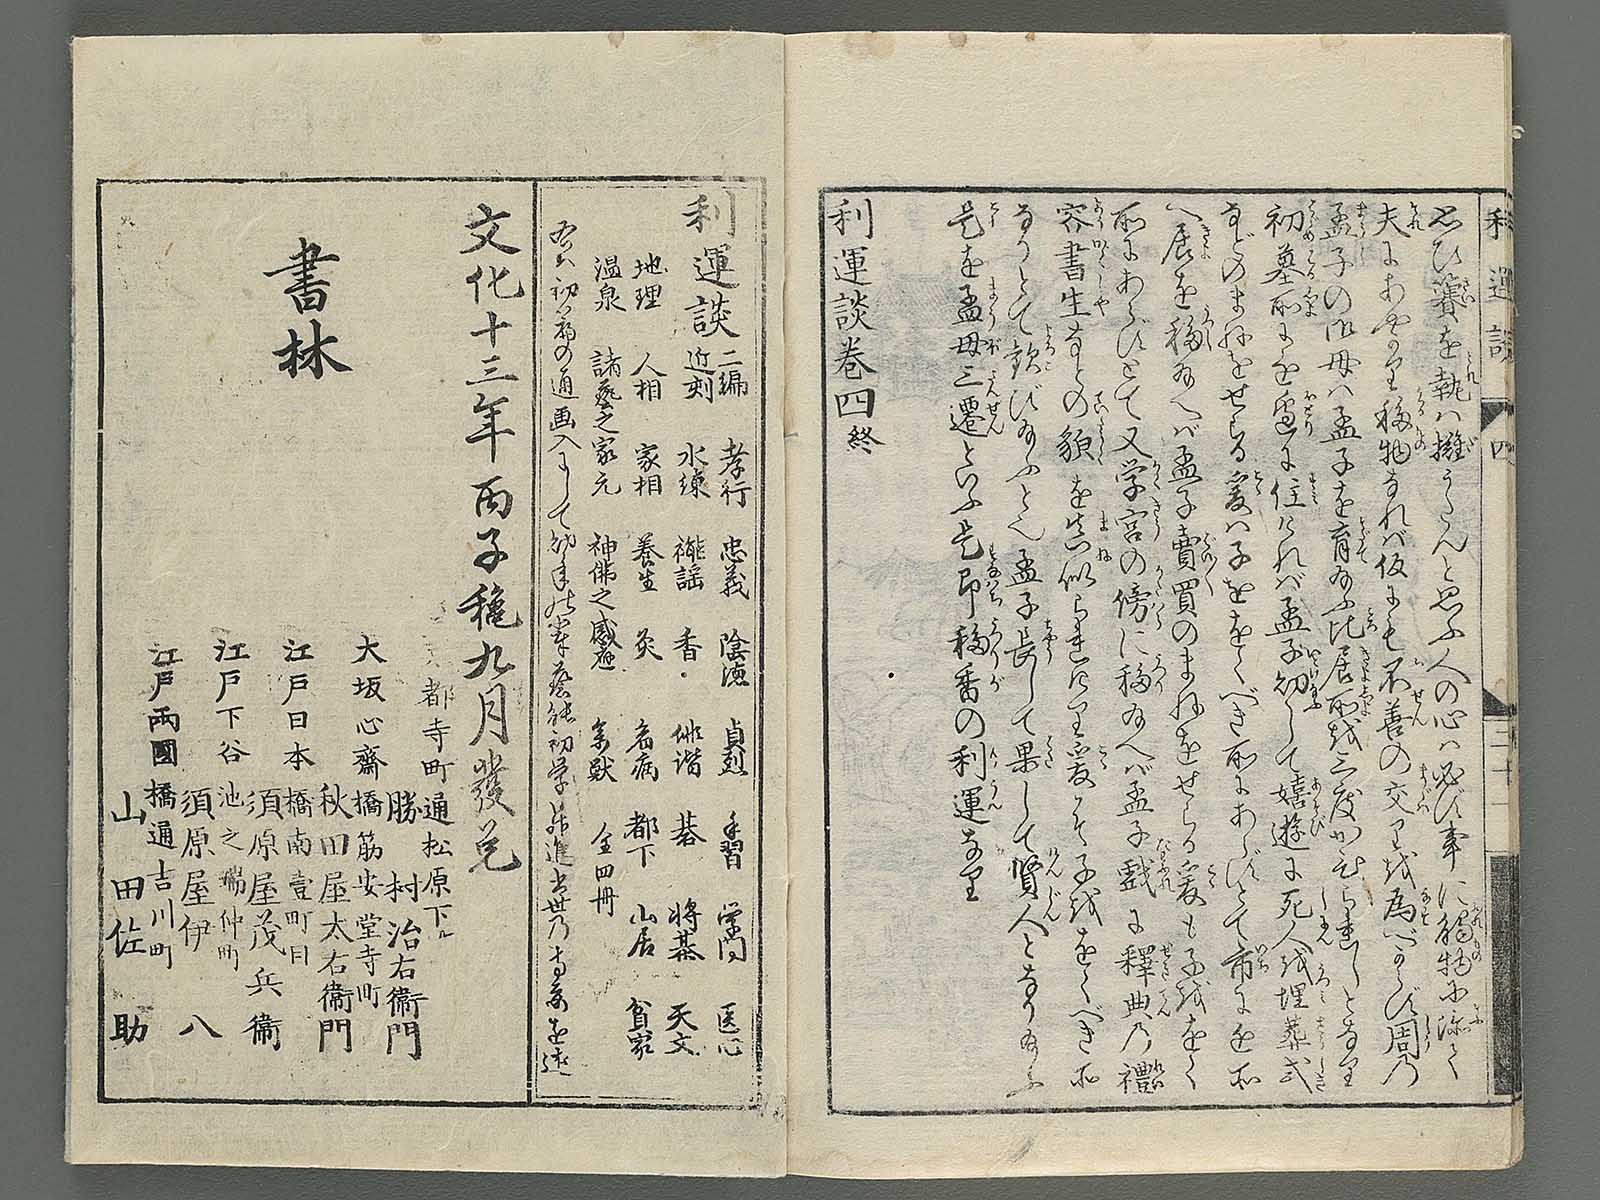 思ひ簺を執ば擁うたんと思ふ人の心は必ず事に觸物に添て
夫にあやかり移物なれば仮にも不善の交り越為べからず周の
孟子の御母は孟子を育給ふ比居所越三度かえられしとなり
初墓所に近き辺に住ければ孟子幼して嬉遊に死人越埋葬式
などのまねをせらる爰は子ををくべき所にあらずとて市に近き
へ居を移給へば孟子賣買のまねをせらる爰も子越をく
所にあらずとて又学宮の傍に移給へば孟子戯に釋典乃禮
容書生などの貌を真似られたり爰こそ子越をくべき所
なりとて歓び給ふとぞ孟子長して果して賢人となり給ふ
是を孟母三遷といふ是即移香の利運なり
利運談巻四終
利運談 四 二十二
利運談 二編近刻 孝行 忠義 陰徳 貞烈 手習 学問 医心
水練 謡 香 俳諧 碁 将棊 天文
地理 人相 家相 養生 灸 病 都下 山居 貧家
温泉 諸藝之家元 神佛之感應 全四冊
文化十三年丙子穐九月發兌
書林
都寺町通松原下ル
勝村治右衞門
大坂心齋橋筋安堂寺町
秋田屋太右衞門
江戸日本橋南壹町目
須原屋茂兵衞
江戸下谷池之端仲町
須原屋伊八
江戸両國橋通吉川町
山田佐助